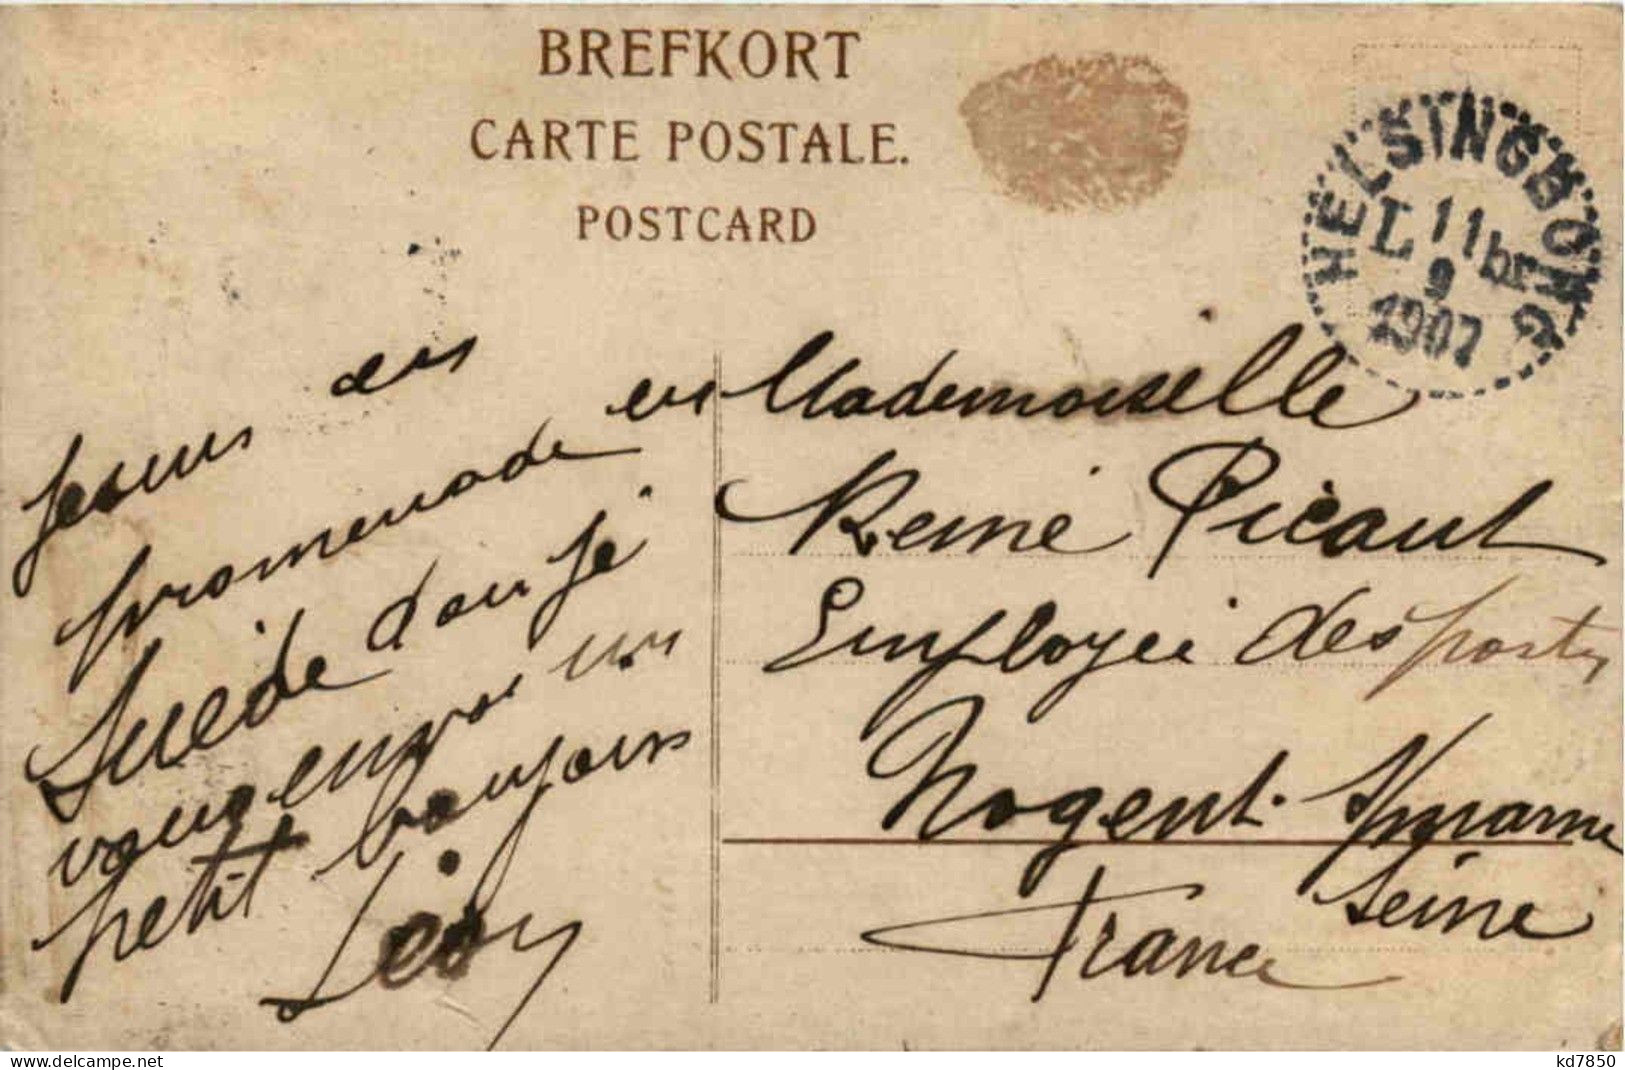 BREFKORT
CARTE POSTALE.
POSTCARD
HELSINGBORG
L 11
11 br
9
1907
Je suis en
promenade en
Suède dou je
vous envoi un
petit bonjours
Léon
Mademoiselle
Reine Picaut
Employée des postes
Nogent s/marne
Seine
France
www.delcampe.net
kd7850